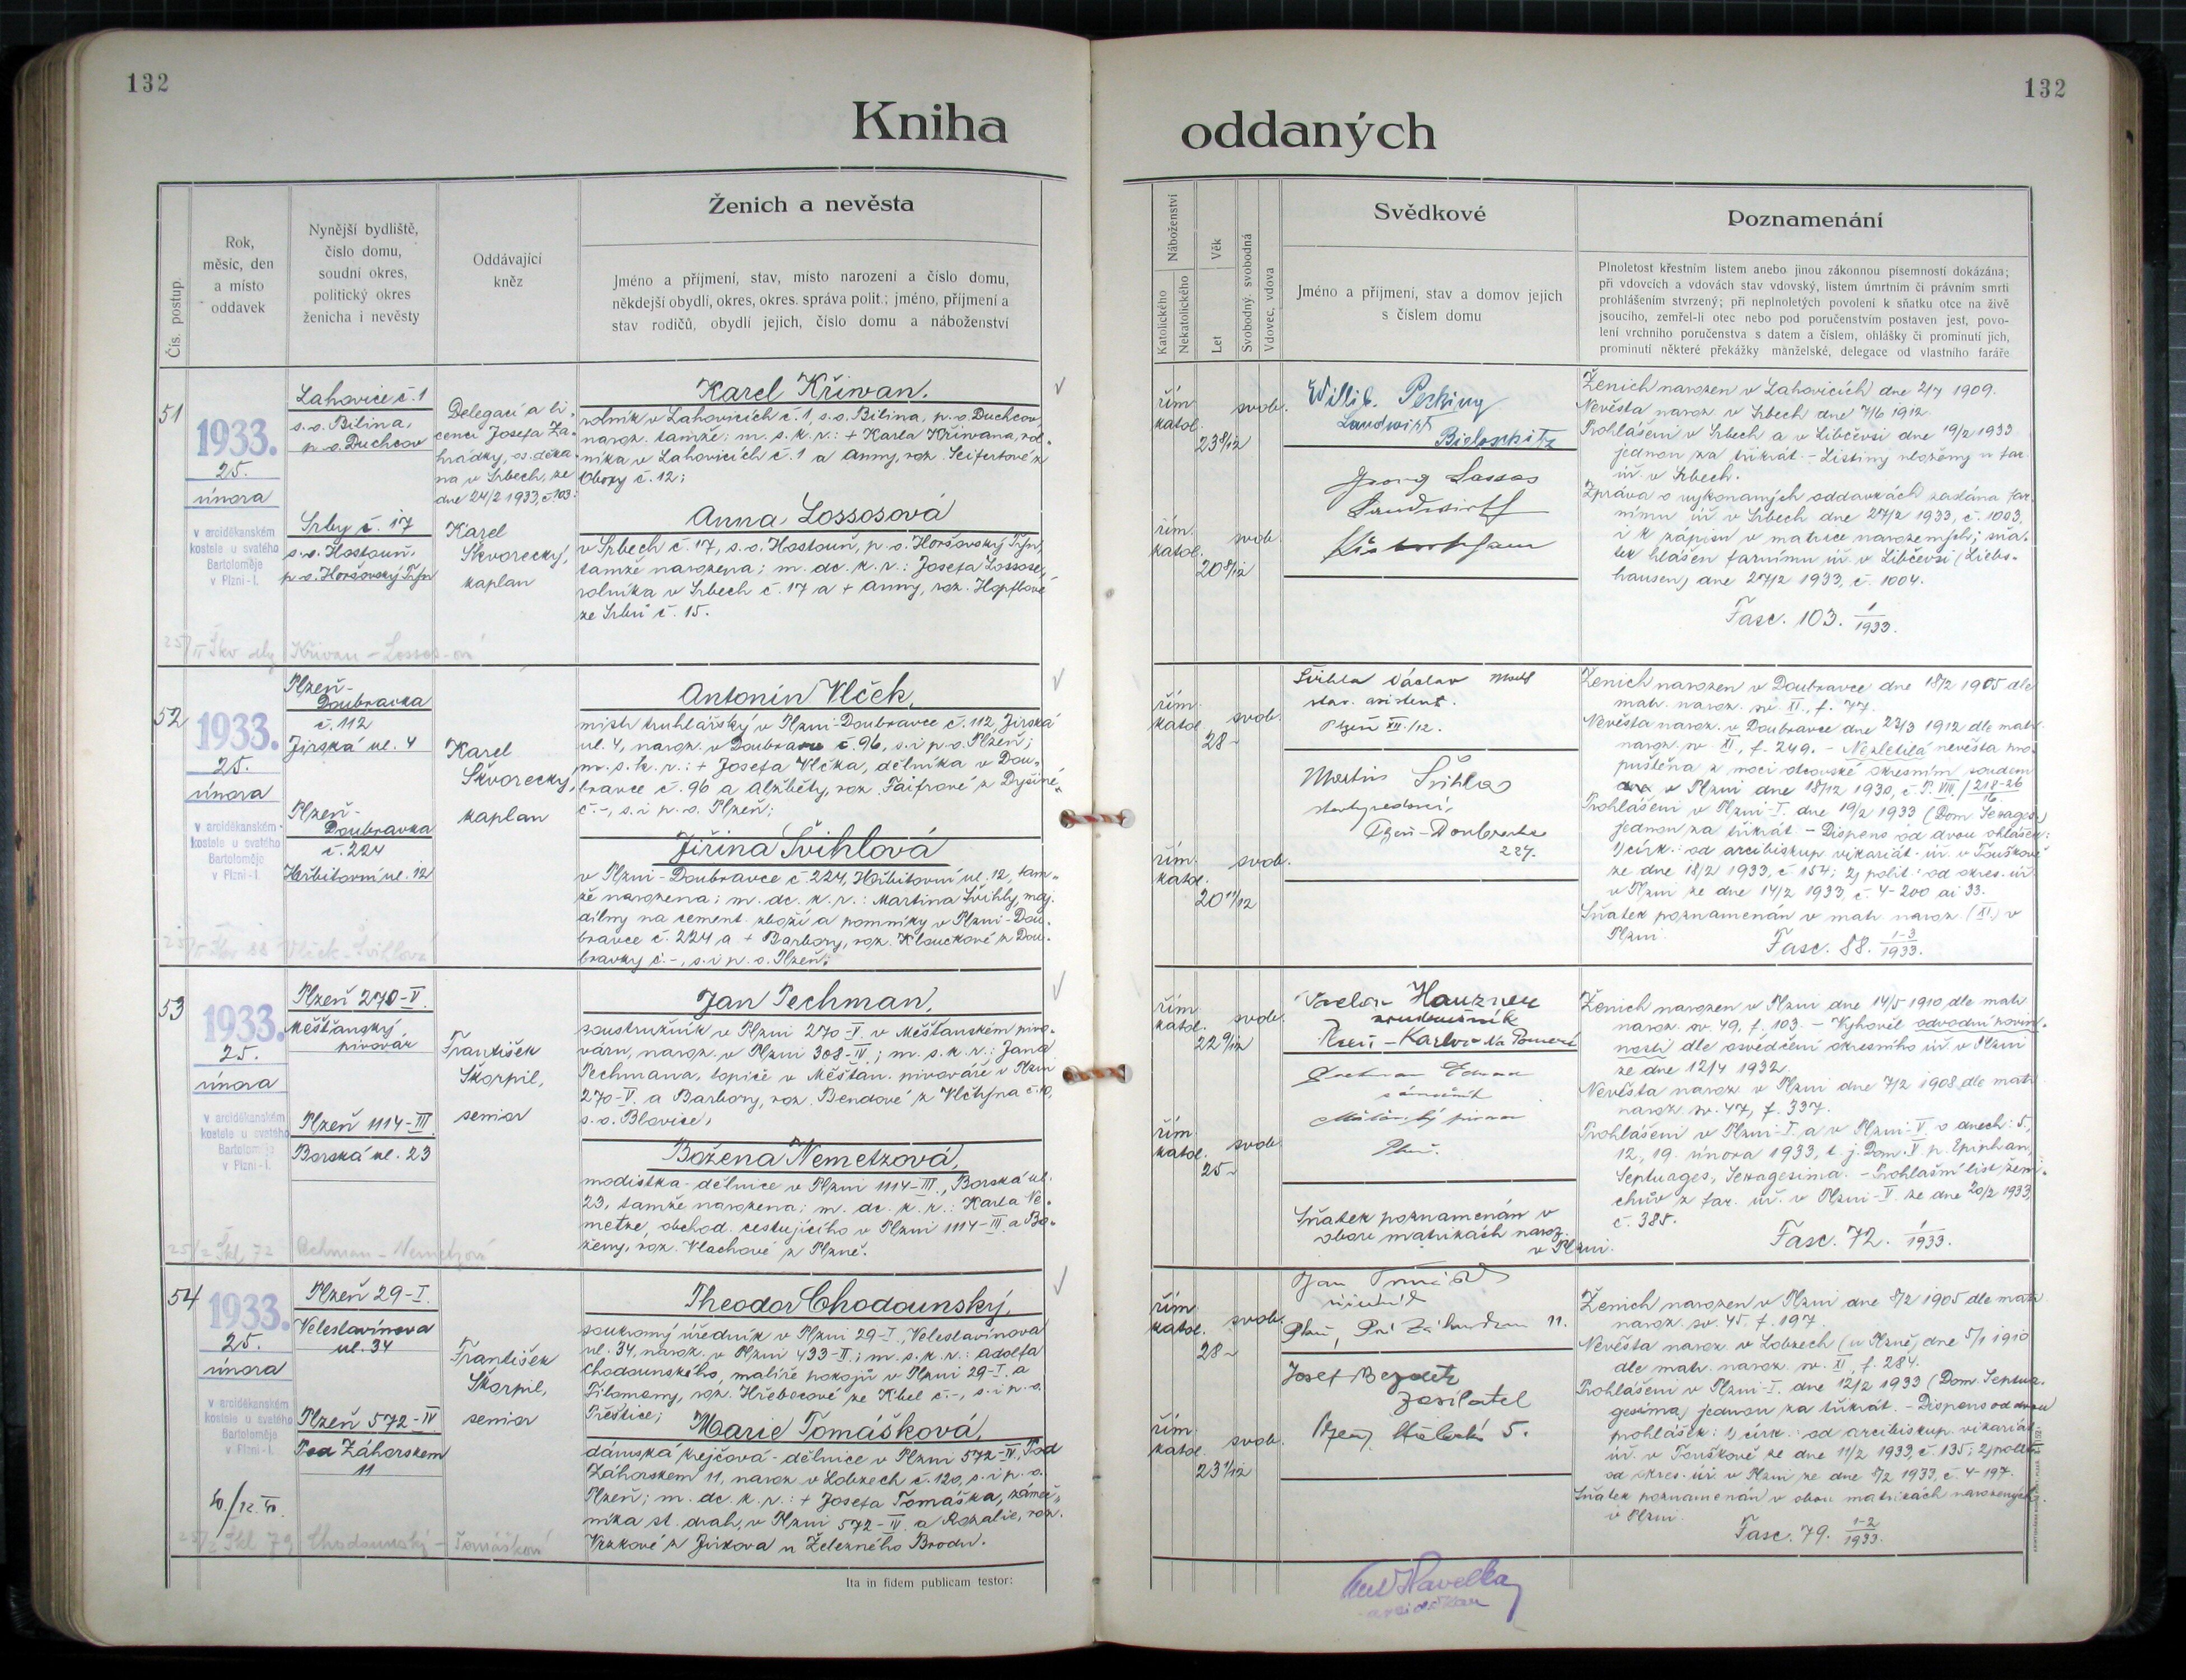 132
Kniha
Čís. postup.
Rok,
měsíc, den
a místo
oddavek
Nynější bydliště,
číslo domu,
soudní okres,
politický okres
ženicha i nevěsty
Oddávající
kněz
Ženich a nevěsta
Jméno a příjmení, stav, místo narození a číslo domu,
někdejší obydlí, okres, okres. správa polit.; jméno, příjmení a
stav rodičů, obydlí jejich, číslo domu a náboženství
51
1933.
25.
února
v arciděkanském
kostele u svatého
Bartoloměje
v Plzni-I.
Lahovice č. 1
s.o. Bilina,
p.o. Duchcov
Srby č. 17
s.o. Hostouň,
p.o. Horšovský Týn
Delegací a li-
cencí Josefa Za-
hrádky, os. děka-
na v Srbech, ze
dne 24/2 1933, č. 103.
Karel
Škvorecký,
kaplan
Karel Křiwan,
rolník v Lahovicích č. 1, s.o. Bilina, p.o. Duchcov,
naroz. tamže; m. s. k. r.: + Karla Křiwana, rol-
níka v Lahovicích č. 1 a Anny, roz. Seifertové z
Obory č. 12;
Anna Lossosová
v Srbech č. 17, s.o. Hostouň, p.o. Horšovský Týn,
tamže narozena; m. dc. k. r.: Josefa Lossose,
rolníka v Srbech č. 17 a + Anny, roz. Hopflové
ze Srbů č. 15.
Křiwan - Lossosová
52
1933.
25.
února
v arciděkanském
kostele u svatého
Bartoloměje
v Plzni-I.
Plzeň-
Doubravka
č. 112
Jirská ul. 4
Plzeň-
Doubravka
č. 224
Hřbitovní ul. 12
Karel
Škvorecký,
kaplan
Antonín Vlček,
mistr truhlářský v Plzni-Doubravce č. 112, Jirská
ul. 4, naroz. v Doubravce č. 96, s. i p.o. Plzeň;
m. s. k. r.: + Josefa Vlčka, dělníka v Dou-
bravce č. 96 a Alžběty, roz. Faifrové z Dyšiné
č. -, s. i p. o. Plzeň;
Jiřina Švihlová
v Plzni-Doubravce č. 224, Hřbitovní ul. 12, tam-
že narozena; m. dc. k. r.: Martina Švihly, maj.
dílny na cement. zboží a pomníky v Plzni-Dou-
bravce č. 224 a + Barbory, roz. Klouckové z Dou-
bravky č. -, s. i p. o. Plzeň.
Vlček - Švihlová
53
1933.
25.
února
v arciděkanském
kostele u svatého
Bartoloměje
v Plzni-I.
Plzeň 270-V.
Měšťanský
pivovar
Plzeň 1114-III
Borská ul. 23
František
Škorpil,
senior
Jan Pechman,
soustružník v Plzni 270-V. v Měšťanském pivo-
váru, naroz. v Plzni 308-IV.; m. s. k. r.: Jana
Pechmana, topiče v Měšťan. pivováře v Plzni
270-V. a Barbory, roz. Bendové z Vlčtejna č. 10,
s. o. Blovice;
Božena Nemetzová,
modistka-dělnice v Plzni 1114-III., Borská ul.
23, tamže narozena; m. dc. k. r.: Karla Ne-
metze, obchod. cestujícího v Plzni 1114-III. a Bo-
ženy, roz. Vlachové z Plzně.
Pechman - Nemetzová
54
1933.
25.
února
v arciděkanském
kostele u svatého
Bartoloměje
v Plzni-I.
Plzeň 29-I.
Veleslavínova
ul. 34
Plzeň 572-IV
Pod Záhorskem
11
František
Škorpil,
senior
Theodor Chodounský,
soukromý úředník v Plzni 29-I., Veleslavínova
ul. 34, naroz. v Plzni 433-II.; m. s. k. r.: Adolfa
Chodounského, malíře pokojů v Plzni 29-I. a
Filomeny, roz. Hřebecové ze Kbel č. -, s. i p. o.
Přeštice;
Marie Tomášková,
dámská krejčová-dělnice v Plzni 572-IV., Pod
Záhorskem 11, naroz. v Lobzech č. 120, s. i p. o.
Plzeň; m. dc. k. r.: + Josefa Tomáška, zámeč-
níka st. drah, v Plzni 572-IV. a Rozalie, roz.
Vrzkové z Jirkova u Železného Brodu.
Chodounský - Tomášková
Ita in fidem publicam testor:
132
oddaných
Náboženství
Katolického
Nekatolického
Věk
Let
Svobodný, svobodná
Vdovec, vdova
Svědkové
Jméno a příjmení, stav a domov jejich
s číslem domu
Poznamenání
Plnoletost křestním listem anebo jinou zákonnou písemností dokázána;
při vdovcích a vdovách stav vdovský, listem úmrtním či právním smrti
prohlášením stvrzený; při neplnoletých povolení k sňatku otce na živě
jsoucího, zemřel-li otec nebo pod poručenstvím postaven jest, povo-
lení vrchního poručenstva s datem a číslem, ohlášky či prominutí jich,
prominutí některé překážky manželské, delegace od vlastního faráře
řím.
katol.
23 8/12
svob.
řím.
katol.
20 8/12
svob.
Landwirt
Georg Lassos
Landwirt
Ženich narozen v Lahovicích dne 2/7 1909.
Nevěsta naroz. v Srbech dne 7/6 1912.
Prohlášeni v Srbech a v Libčevsi dne 19/2 1933
jednou za třikrát. - Listiny uloženy u far.
úř. v Srbech.
Zpráva o vykonaných oddavkách zaslána far-
nímu úř. v Srbech dne 27/2 1933, č. 1003,
i k zápisu v matrice narozených; sňa-
tek hlášen farnímu úř. v Libčevsi (Liebs-
hausen) dne 27/2 1933, č. 1004.
Fasc. 103. 1/1933.
řím.
katol.
28-
svob.
řím.
katol.
20 11/12
svob.
Švihla Václav
stav. asistent.
Plzeň XII./12.
Martin Švihla
Plzeň-Doubravka
224.
Ženich narozen v Doubravce dne 18/2 1905 dle
matr. naroz. sv. XI., f. 77.
Nevěsta naroz. v Doubravce dne 23/3 1912 dle matr.
naroz. sv. XI, f. 249. - Nezletilá nevěsta pro-
puštěna z moci otcovské okresním soudem
v Plzni dne 18/12 1930, č. P. VIII./218-26/16.
Prohlášeni v Plzni-I. dne 19/2 1933 (Dom. Sexages.)
jednou za třikrát. - Dispens od dvou ohlášek:
1) círk.: od arcibiskup. vikariát. úř. v Touškově
ze dne 18/2 1933, č. 154; 2) polit.: od okres. úř.
v Plzni ze dne 14/2 1933, č. 4-200 ai 33.
Sňatek poznamenán v matr. naroz. (XI.) v
Plzni.
Fasc. 88. 1-3/1933.
řím.
katol.
22 9/12
svob.
řím.
katol.
25-
svob.
Václav Hauzner
soustružník
Plzeň - Karlov
Plzeň.
Sňatek poznamenán v
obou matrikách naroz.
v Plzni.
Ženich narozen v Plzni dne 14/5 1910 dle matr.
naroz. sv. 49, f. 103. - Vyhověl odvodní povin-
nosti dle osvědčení okresního úř. v Plzni
ze dne 12/4 1932.
Nevěsta naroz. v Plzni dne 7/2 1908 dle matr.
naroz. sv. 47, f. 337.
Prohlášeni v Plzni-I. a v Plzni-V. o dnech: 5.,
12., 19. února 1933, t. j. Dom. V. p. Epiphan.,
Septuages., Sexagesima. - Prohlašní list ženi-
chův z far. úř. v Plzni-V. ze dne 20/2 1933,
č. 385.
Fasc. 72. 1/1933.
řím.
katol.
28-
svob.
řím.
katol.
23 1/12
svob.
Jan Tomášek
Plzeň, Pod Záhorskem 11.
Josef
zasilatel
5.
Ženich narozen v Plzni dne 8/2 1905 dle matr.
naroz. sv. 45, f. 197.
Nevěsta naroz. v Lobzech (u Plzně) dne 5/1 1910
dle matr. naroz. sv. XI, f. 284.
Prohlášeni v Plzni-I. dne 12/2 1933 (Dom. Septua-
gesima) jednou za třikrát. - Dispens od dvou
prohlášek: 1) círk.: od arcibiskup. vikariát.
úř. v Touškově ze dne 11/2 1933, č. 135; 2) polit.:
od okres. úř. v Plzni ze dne 8/2 1933, č. 4-197.
Sňatek poznamenán v obou matrikách narozených
v Plzni.
Fasc. 79. 1-2/1933.
Havelka
arciděkan